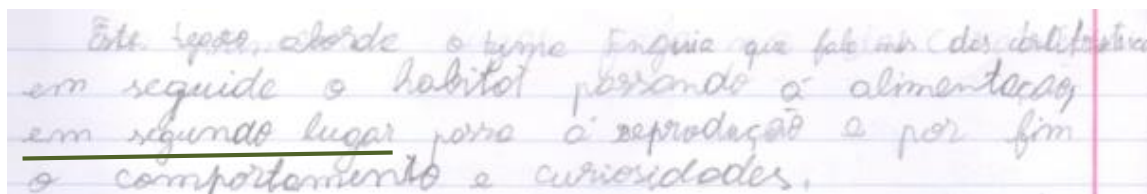 Este texto, aborda o tema Enguia que fala nos das
em seguida o habitat passando á alimentação,
em segundo lugar passa á reprodução e por fim
o comportamento e curiosidades.